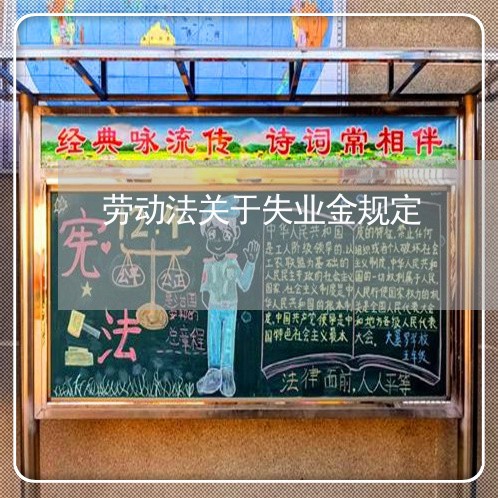 经典咏流传 诗词常相伴
劳动法关于失业金规定
宪法
公平 公正
总章程
中华人民共和国
是工人阶级领导的,以
工农联盟为基础的
人民民主专政的社会主义
国家,社会主义制度是中
华人民共和国的根本制
度,中国共产党领导是中
国特色社会主义最本
质的特征,禁止任何
组织或者个人破坏社会
主义制度,中华人民共和
国的一切权利属于人民,
人民行使国家权力的机
关是全国人民代表大会
和地方各级人民代表
大会。
五年级
法律面前,人人平等